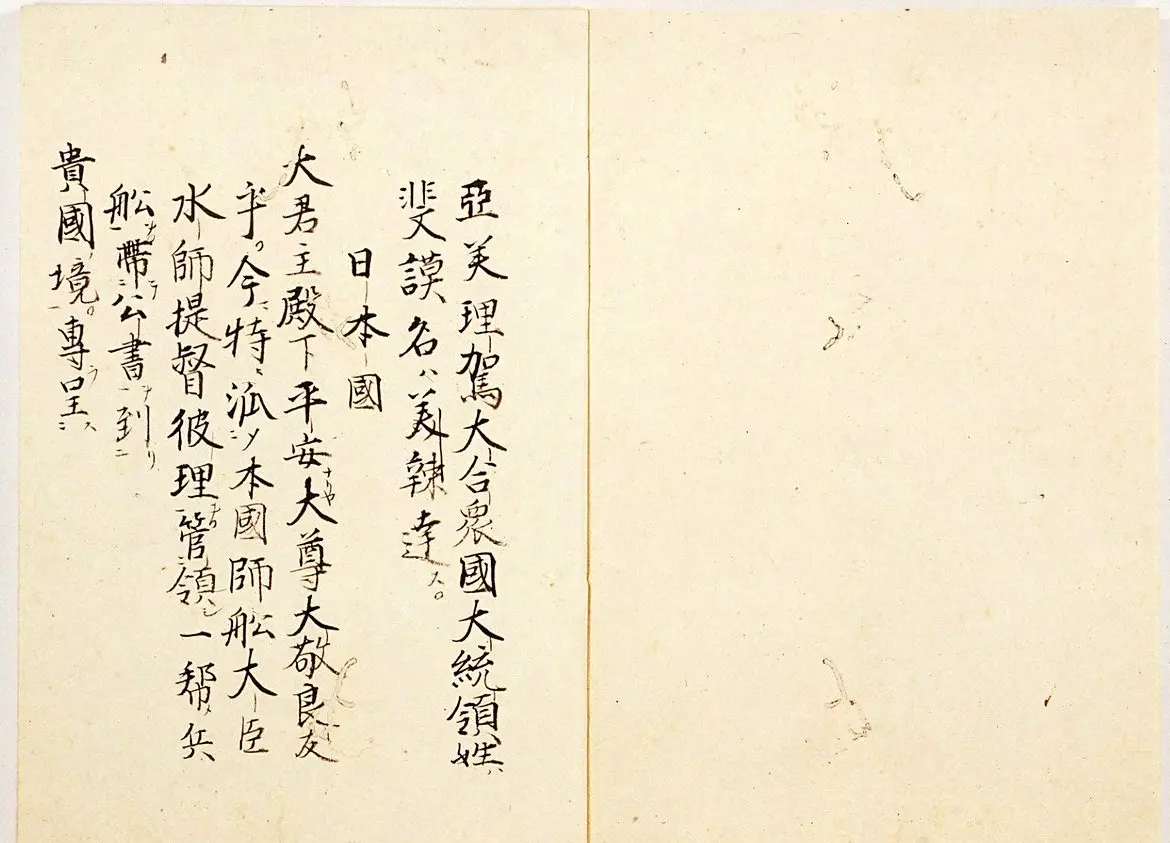 亞美理駕大合衆國大統領姓ハ
斐謨名ハ美辣達ス。
日本國
大君主殿下平安ナリヤ大尊大敬良友
乎。今特ニ泒シ本國師舩大臣
水師提督彼理管領一帮ノ兵
舩帶公書到リ
貴國境。專ラ呈ス